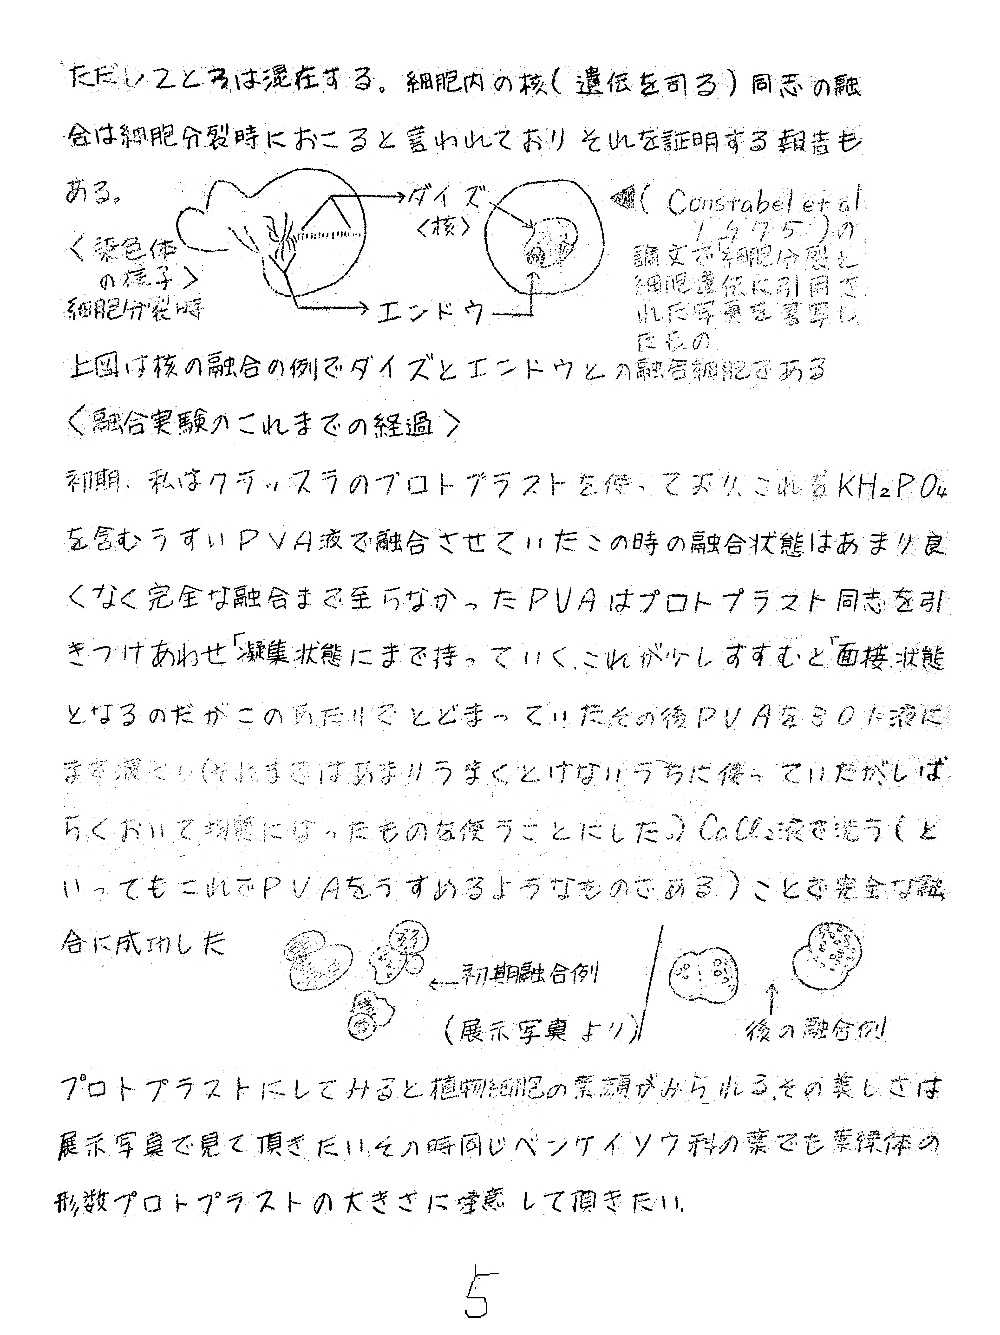 ただしマところは混在する。細胞内の核(遺伝を司る)同志の融
合は細胞分裂時におこると言われておりそれを証明する報告も
ある。
ダイズ
〈核〉
〈染色体
の様子〉
細胞分裂時
エンドウ
(Constabel et al
1975)の
論文で「細胞分裂と
細胞遺伝に引用さ
れた写真を書写し
たもの
上図は核の融合の例でダイズとエンドウとの融合細胞である
〈融合実験のこれまでの経過〉
初期、私はクラッスラのプロトプラストを使っており、これをKH₂PO₄
を含むうすいPVA液で融合させていたこの時の融合状態はあまり良
くなく完全な融合まで至らなかったPVAはプロトプラスト同志を引
きつけあわせ「凝集状態にまで持っていく、これが少しすすむと「面接状態
となるのだがこのあたりでとどまっていたその後PVAを 液に
まず (それまではあまりうまくとけないうちに使っていたがしば
らくおいて になったものを使うことにした。)CaCl₂液で洗う(と
いってもこれでPVAをうすめるようなものである)ことで完全な融
合に成功した
←初期融合例
(展示写真より)
後の融合例
プロトプラストにしてみると植物細胞の素顔がみられる、その美しさは
展示写真で見て頂きたい、その時同じベンケイソウ科の葉でも葉緑体の
形、数プロトプラストの大きさに注意して頂きたい、
5